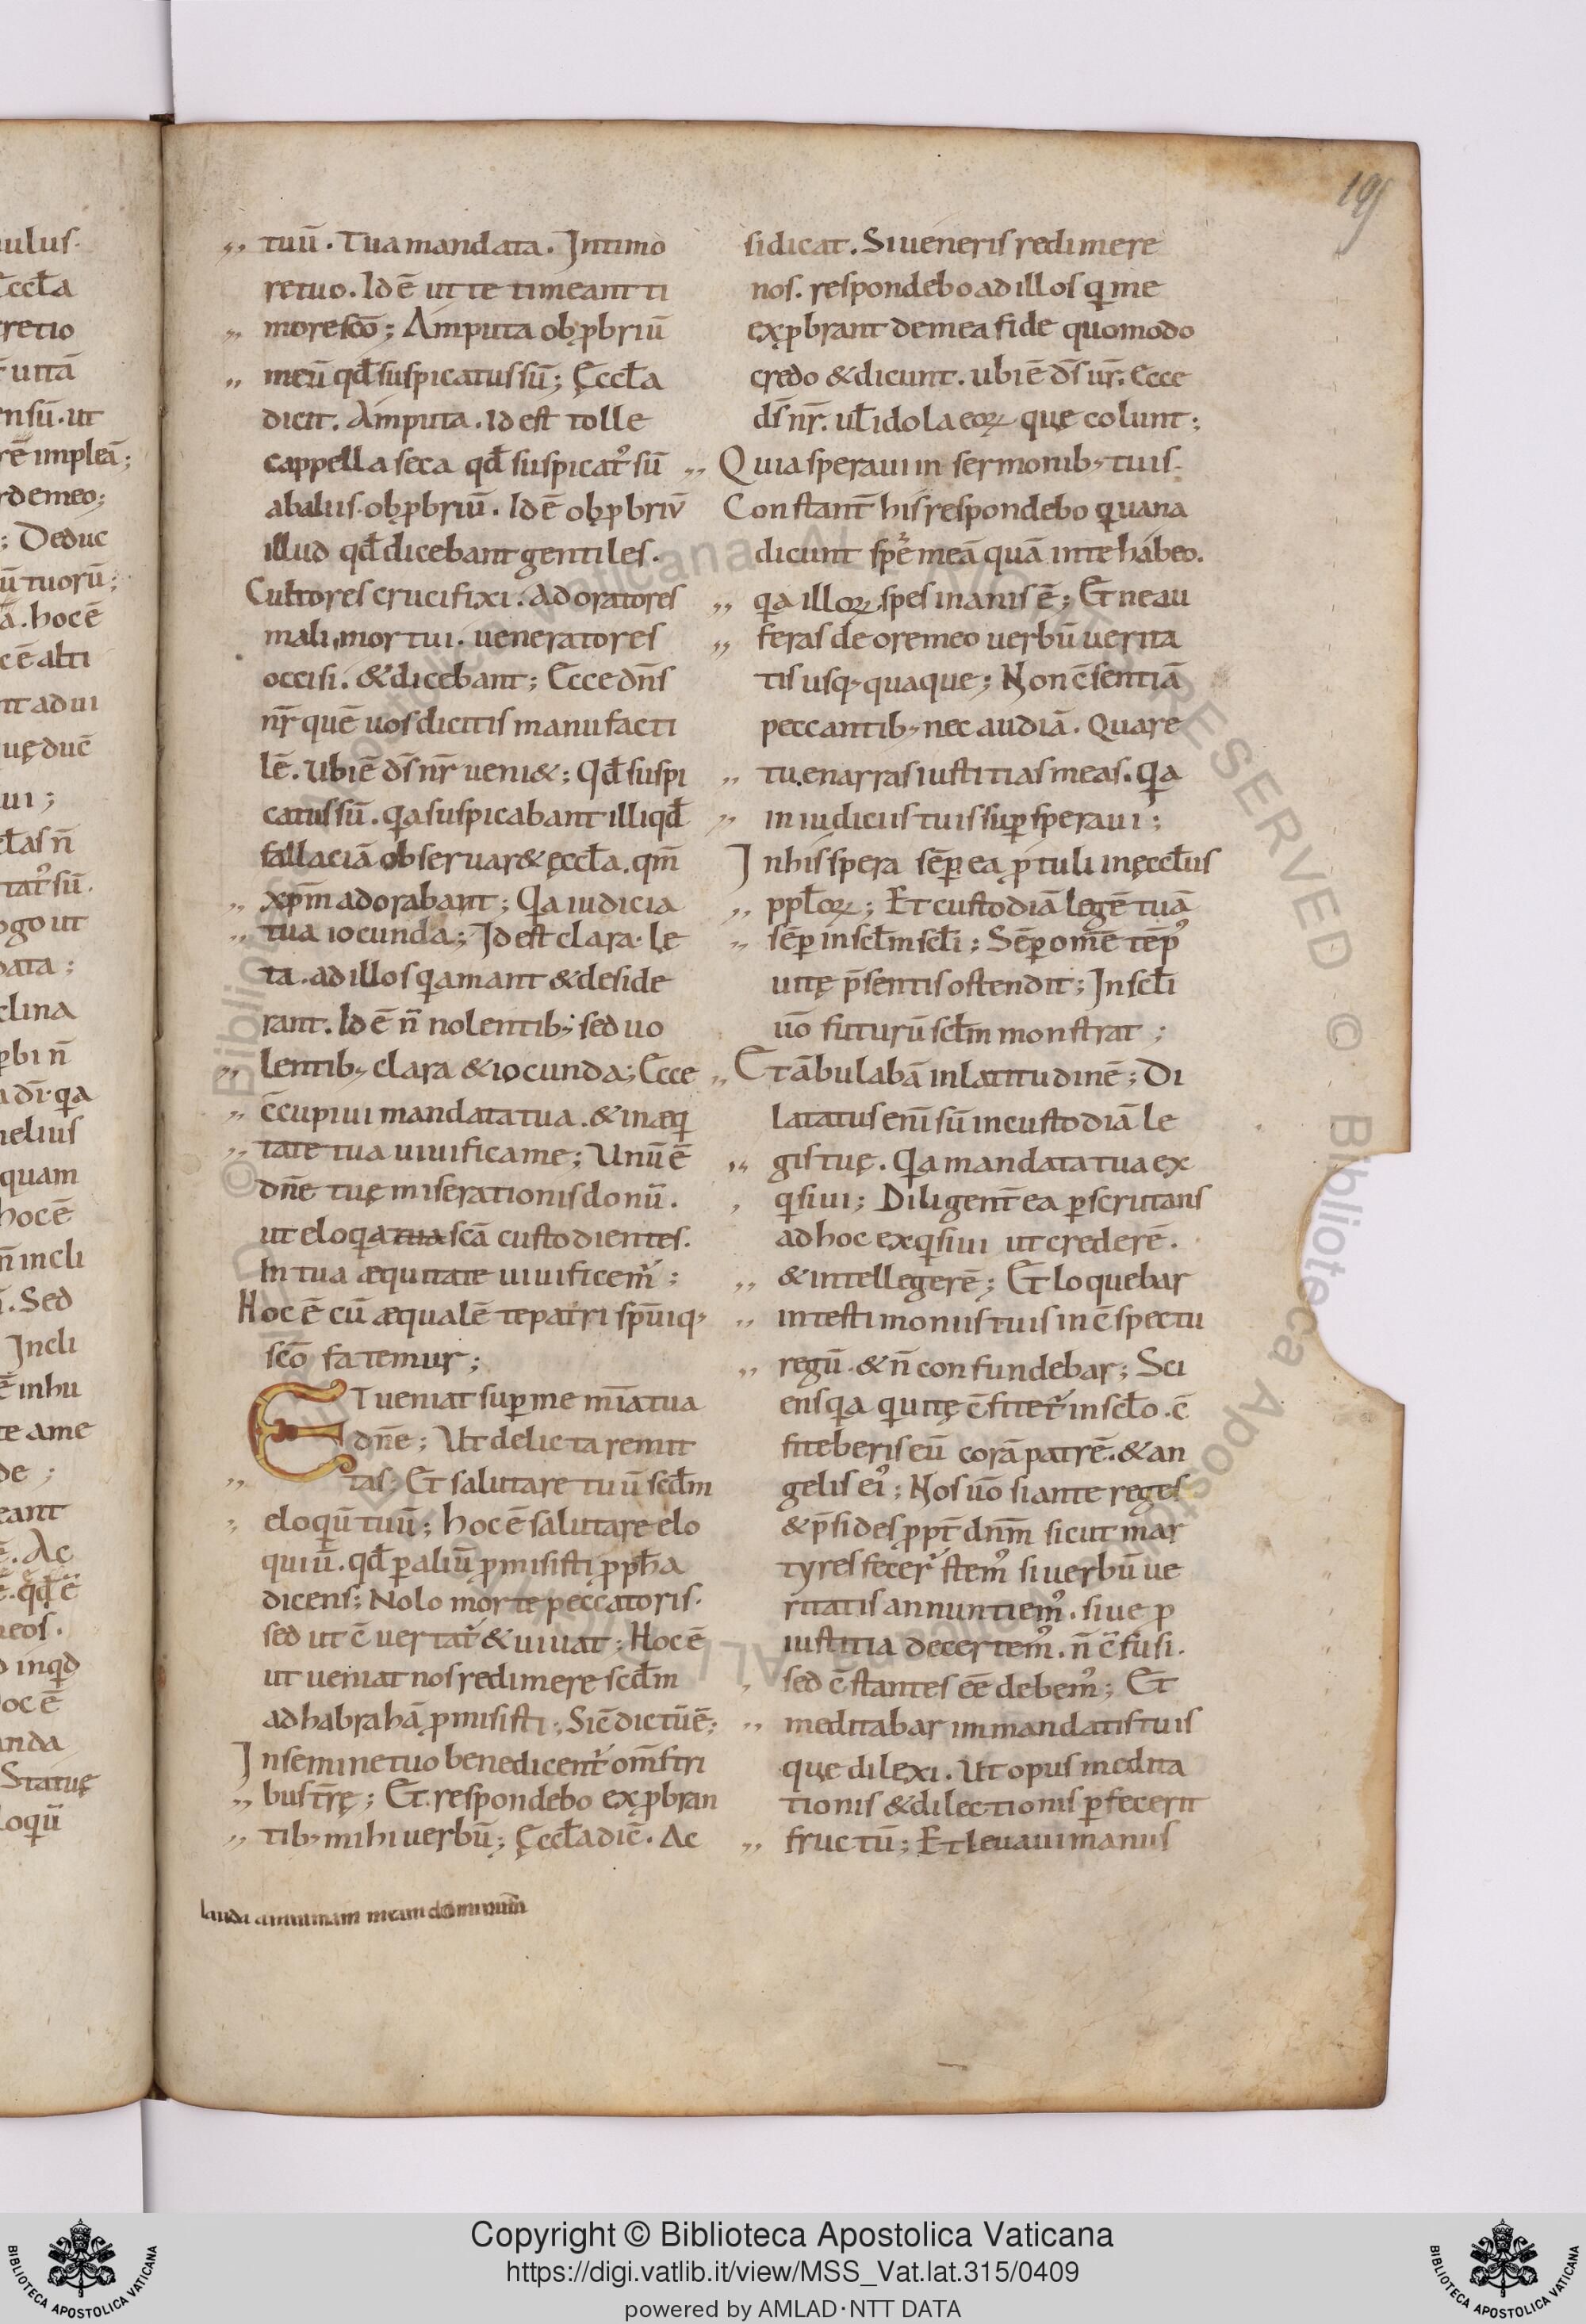 195
tuū. Tua mandata. Intimo
re tuo. Id ē ut te timeant ti
more scō; Amputa obꝓbriū
meū qđ suspicatus sū; Ęccła
dicit. Amputa. Id est tolle
cappella seca qđ suspicat᷒ sū
ab aliis obꝓbriū. Id ē obꝓbriū
illud qđ dicebant gentiles.
Cultores crucifixi. Adoratores
mali mortui. ueneratores
occisi. & dicebant; Ecce dn̄s
nr̄ quē uos dicitis manufacti
lē. Ubi ē d̄s nr̄ ueni&; Qđ suspi
catus sū. qa suspicabant illi qđ
fallaciā obseruar& ęccła. qm̄
xp̄m adorabant; Qa iudicia
tua iocunda; Id est clara. lę
ta. ad illos q amant & deside
rant. Id ē n̄ nolentib; sed uo
lentib; clara & iocunda; Ecce
c̄cupiui mandata tua. & in æq
tate tua uiuifica me; Unū ē
dn̄e tuę miserationis donū.
ut eloqa tua scā custodientes.
In tua æquitate uiuificem᷒;
Hoc ē cū æqualē te patri sp̄uiq;
scō fatemur;
ET ueniat suꝑ me mīa tua
dn̄e; Ut delicta remit
tas; Et salutare tuū scđm
eloqū tuū; hoc ē salutare elo
quiū. qđ ꝑ aliū ꝓmisisti ꝓpħa
dicens; Nolo morte peccatoris.
sed ut c̄uertat᷒ & uiuat; Hoc ē
ut ueniat nos redimere scđm
ad habrahā ꝓmisisti; Sic̄ dictū ē;
In semine tuo benedicent᷒ om̄s tri
bus tr̄ę; Et respondebo exꝓbran
tib; mihi uerbū; Ęccła dic̄. Ac
si dicat. Si ueneris redimere
nos. respondebo ad illos qi me
exꝓbrant de mea fide quomodo
credo & dicunt. ubi ē d̄s ur̄. Ecce
d̄s nr̄. uł idola eoꝝ quę colunt;
Quia speraui in sermonib; tuis.
Constant̄ his respondebo qua uana
dicunt spē meā quā in te habeo.
qa illoꝝ spes inanis ē; Et ne au
feras de ore meo uerbū uerita
tis usq; quaque; Non c̄sentiā
peccantib; nec audiā. Quare
tu enarras iustitias meas. Qa
in iudiciis tuis suꝑ speraui;
In his spera sēꝑ ea ꝓtuli in ęccłiis
ppłoꝝ; Et custodiā legē tuā
sēꝑ in scłm scłi; Sēꝑ omē tēp᷒
uitę p̄sentis ostendit; In scłi
uō futurū scłm monstrat;
Et ābulabā in latitudinē; Di
latatus enī sū in custodiā le
gis tuę. Qa mandata tua ex
qsiui; Diligent̄ ea ꝑscrutans
ad hoc exqsiui ut crederē.
& intellegerē; Et loquebar
in testimoniis tuis in c̄spectu
regū. & n̄ confundebar; Sci
ens qa qui te c̄fitet᷒ in scło. c̄
fiteberis eū corā patrē. & an
gelis ei᷒; Nos uō si ante reges
& p̄sides ꝓpt̄ dnm̄ sicut mar
tyres fecer᷒ stem᷒ si uerbū ue
ritatis annuntiem᷒. siue ꝓ
iustitia decertem᷒. n̄ c̄fusi.
sed c̄stantes eē debem᷒; Et
meditabar in mandatis tuis
que dilexi. Ut opus medita
tionis & dilectionis ꝑfecerit
fructū; Et leuaui manus
lauda animam meam dominum
Copyright © Biblioteca Apostolica Vaticana
https://digi.vatlib.it/view/MSS_Vat.lat.315/0409
powered by AMLAD·NTT DATA